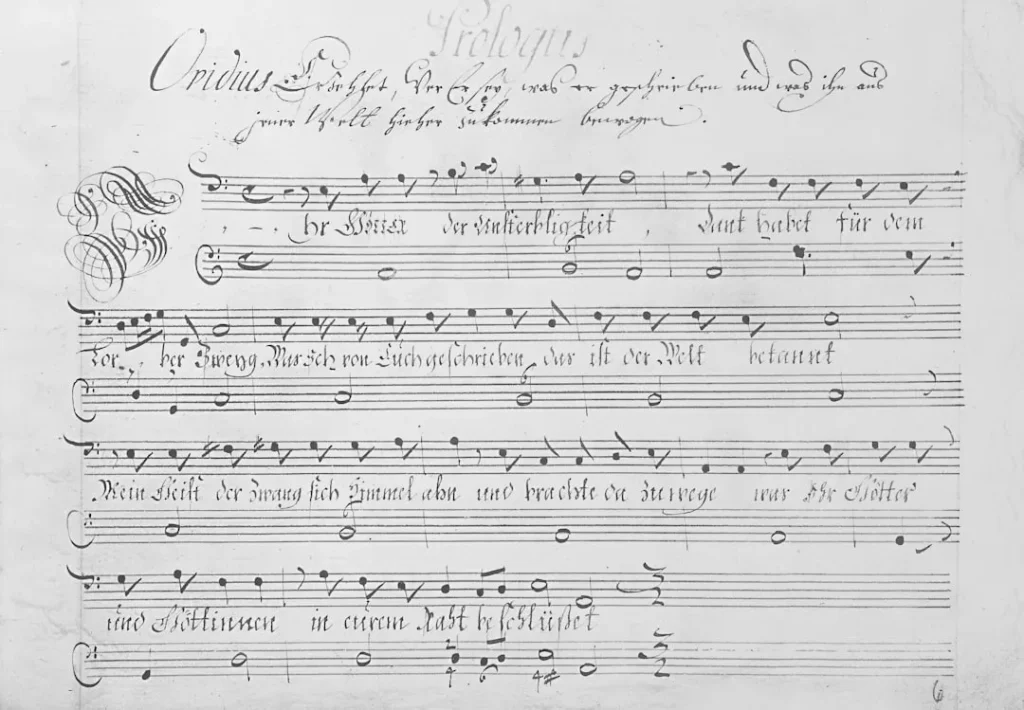 Prologus
Ovidius Erzehlet, Wer Er sey, was er geschrieben und was ihn aus
jener Welt hieher zu kommen bewogen.
Ihr Götter der Unsterbligkeit, Dank habet für dem
Lor, ber Zweyg, Was Ich von Euch geschrieben, das ist der Welt bekannt
Mein Geist der zwang sich Himmel ahn und brachte da zu wege was Ihr Götter
und Göttinnen in eurem Raht beschlüßet
6